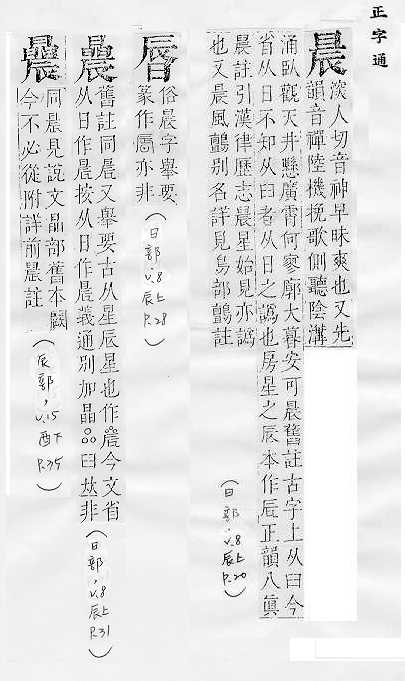 正字通
晨
人切音神早昧爽也又先
韻音禪陸機挽歌側聽陰溝
涌臥觀天井懸廣霄何寥廓大暮安可晨舊註古字上从曰今
省从日不知从曰者从日之譌也房星之辰本作辰正韻八眞
晨註引漢律歷志晨星始見亦譌
也又晨風鸇別名詳見鳥部鸇註
(日部,v.8 辰上 P.20)
俗晨字舉要
篆作亦非
(日部 v.8 辰上 P.28)
舊註同晨又舉要古从星辰星也作今文省
从日作晨按从日作晨義通別加晶曰𠀤非
(日部,v.8 辰上 P.31)
曟
同晨見說文晶部舊本闕
今不必從附詳前晨註
(辰部,v.15 酉下 P.35)